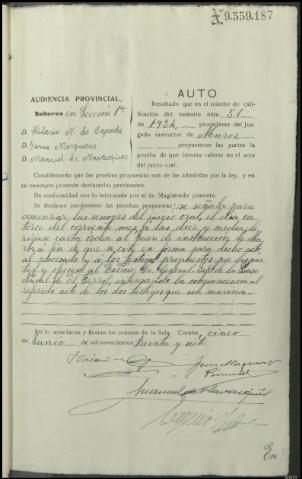 9.559.187
AUDIENCIA PROVINCIAL
Señores en Sección 1ª
D. Hilario N. de Cepeda
D. Jesús Marquina
D. Manuel de
AUTO
Resultado que en el trámite de cali-
ficación del sumario núm. 51
de 1932, procedente del Juz-
gado instructor de Muros
propusieron las partes la
prueba de que intenta valerse en el acto
del juicio oral.
Considerando que las pruebas propuestas son de las admitidas por la ley, y en
tal concepto procede declararlas pertinentes.
De conformidad con lo informado por el Sr. Magistrado ponente.
Se declaran pertinentes las pruebas propuestas: se señala para
comenzar las sesiones del juicio oral, el día ca-
torce del corriente mes, a las diez y media, di-
ríjase carta orden al Juez de instrucción de Mu-
ros, a fin de que cite en forma para dicho acto
al procesado y a los testigos propuestos por las par-
tes, y ofíciese al Excmo. Sr. General Jefe de la Base
Naval de El Ferrol, interesándole la comparecencia al
referido acto de los dos testigos que son marinos.
Así lo acordaron y firman los señores de la Sala. Coruña, cinco
de Junio de mil novecientos treinta y siete
En